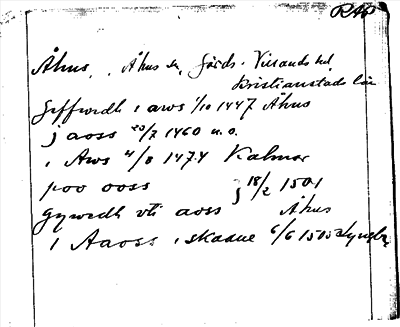 RAP
Åhus, Åhus sn, Gärds, Villands hd,
Kristianstads län
Geffwedh i aws 1/10 1447 Åhus
j aoss 20/7 1460 u.o.
i Aws 4/8 1474 Kalmar
poo ooss j 18/2 1501
gywedh vti aoss Åhus
i Aaoss i skaane 6/6 1505 Lyngby